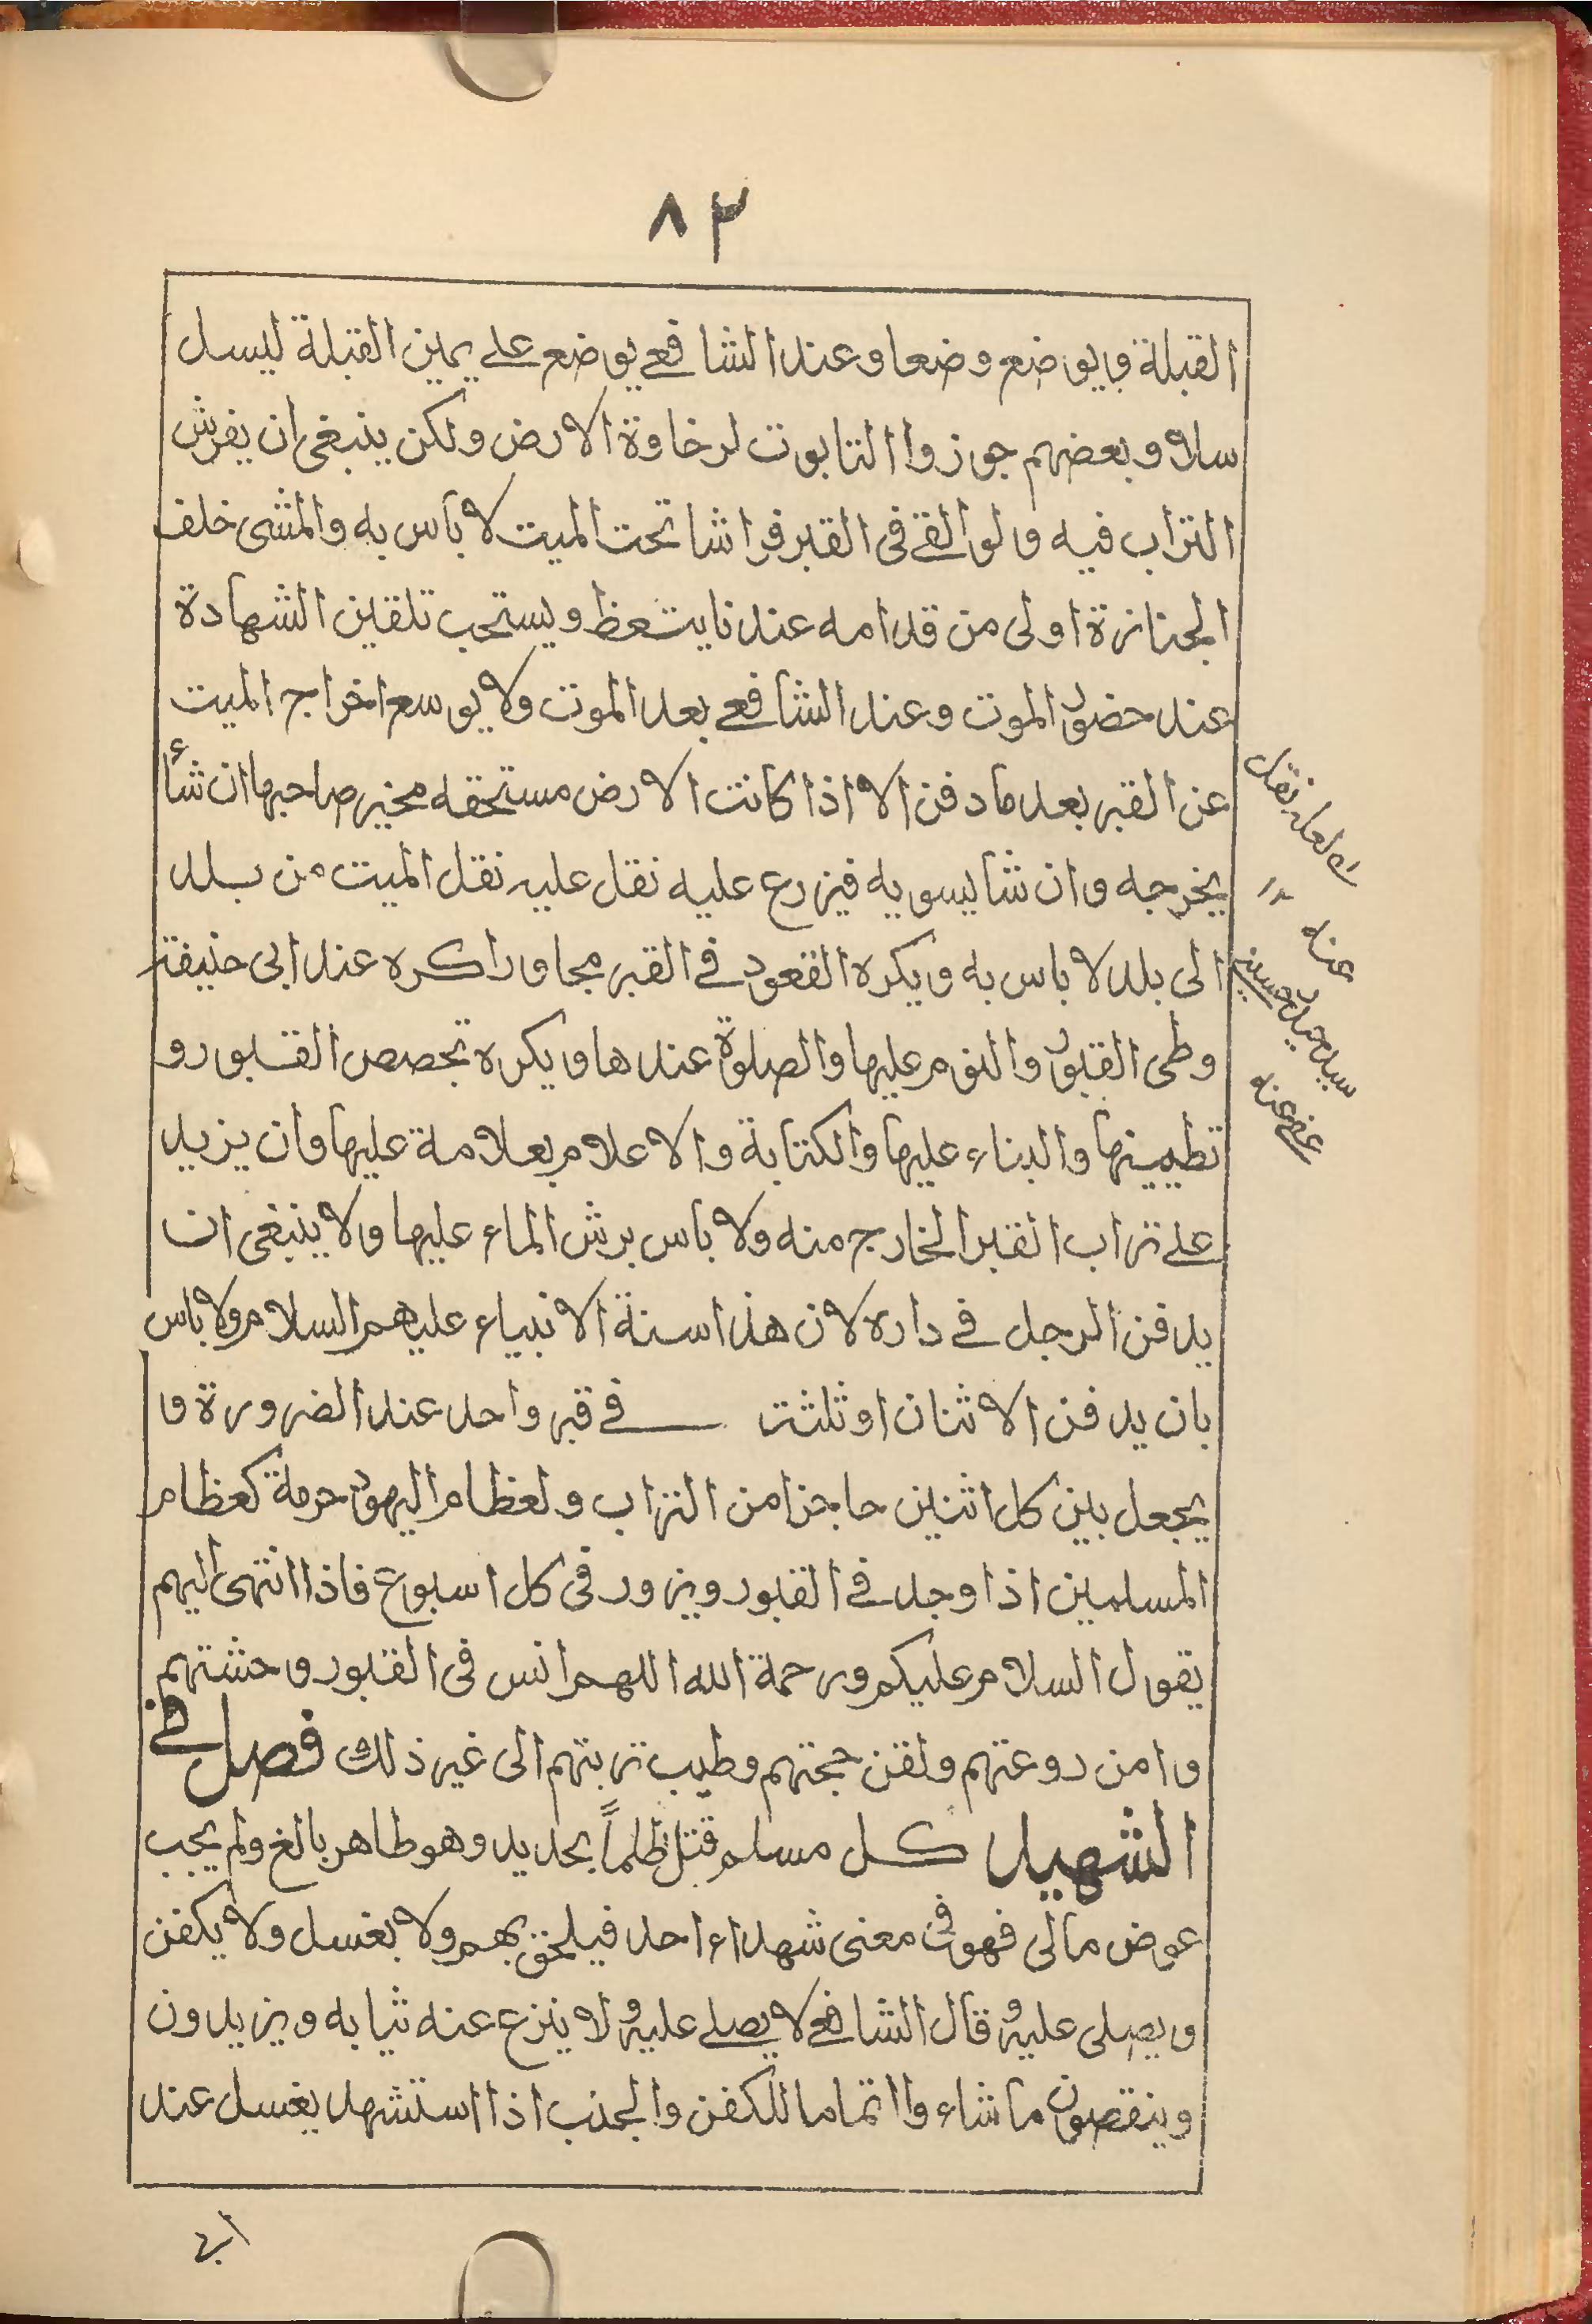 ٨٣
القبلة ويوضع وضعا وعند الشافعے يوضع علے يمين القبلة ليسل
سلا وبعضهم جوزوا التابوت لرخاوة الارض ولكن ينبغى ان يفرش
التراب فيه ولو القے فى القبر فراشا تحت الميت لا بأس به والمشى خلف
الجنازة اولى من قدامه عندنا يتعظ ويستحب تلقين الشهادة
عند حضور الموت وعند الشافعے بعد الموت ولا يوسع اخراج الميت
عن القبر بعد ما دفن الا اذا كانت الارض مستحقه مخير صاحبها ان شأ
يخرجه وان شا يسويه فيزرع عليه نقل عليه نقل الميت من بلد
الى بلد لا باس به ويكره القعود فے القبر مجاورا كره عند ابى حنيفة
وطى القبور والنوم عليها والصلوة عندها ويكره تجصص القبور و
تطيينها والبناء عليها والكتابة والاعلام بعلامة عليها وان يزيد
علے تراب القبر الخارج منه ولا باس برش الماء عليها ولا ينبغى ان
يدفن الرجل فے داره لان هذا سنة الانبياء عليهم السلام ولا باس
بان يدفن الاثنان او ثلثت فے قبر واحد عند الضرورة و
يجعل بين كل اثنين حاجزا من التراب ولعظام اليهود حرمة كعظام
المسلمين اذا وجد فے القبور ويزور فى كل اسبوع فاذا انتهى اليهم
يقول السلام عليكم ورحمة الله اللهم انس فى القبور وحشتهم
وامن روعتهم ولقن حجتهم وطيب تربتهم الى غير ذلك فصل فے
الشهيد كل مسلم قتل ظلماً بحديد وهو طاهر بالغ ولم يجب
عوض مالى فهو فى معنى شهداء احد فيلحق بهم ولا بغسل ولا يكفن
ويصلى عليه وقال الشافعے لا يصلے عليه ولا ينزع عنه ثيابه ويزيدون
وينقصون ما شاء وا اتماما للكفن والجنب اذا استشهد يغسل عند
لعله نقل
عنه ١٢
سيد حسينى
عفے عنه
ابى